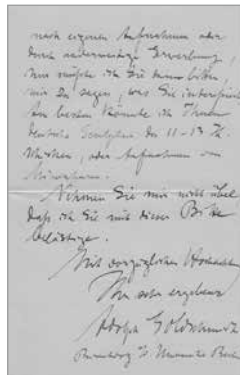 nach eigenen Aufnahmen oder
durch anderweitige Erwerbung,
Nun möchte ich Sie bitten,
mir zu sagen, was Sie
Am besten könnte ich Ihnen
deutsche Sculptur des 11-13 Jh.
oder Aufnahmen von
Miniaturen.
Nehmen Sie mir nicht übel
daß ich Sie mit dieser Bitte
belästige.
Mit vorzüglicher
Ihr sehr ergebener
Adolph Goldschmidt